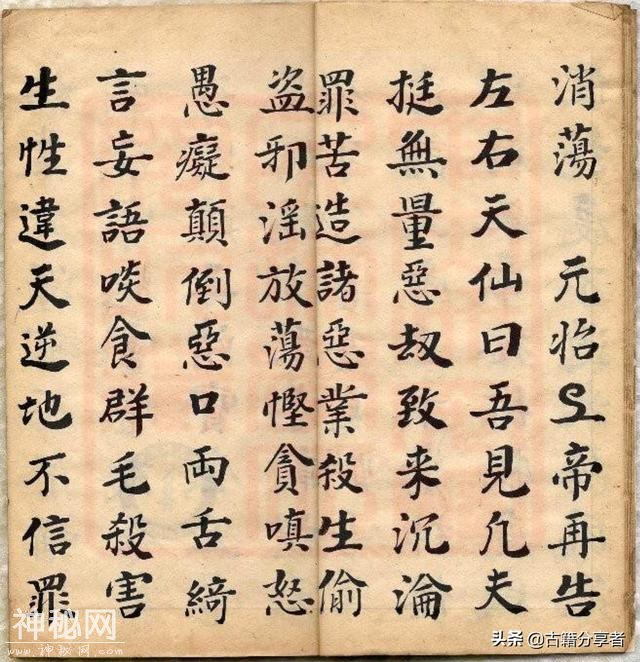 消蕩 元始帝再告
左右天仙曰吾見凢夫
挺無量惡刼致来沉淪
罪苦造諸惡業殺生偷
盗邪滛放蕩慳貪嗔怒
愚癡顛倒惡口両舌綺
言妄語啖食群毛殺害
生性違天逆地不信罪
神秘网
www.神秘网.com
头条 @古籍分享者